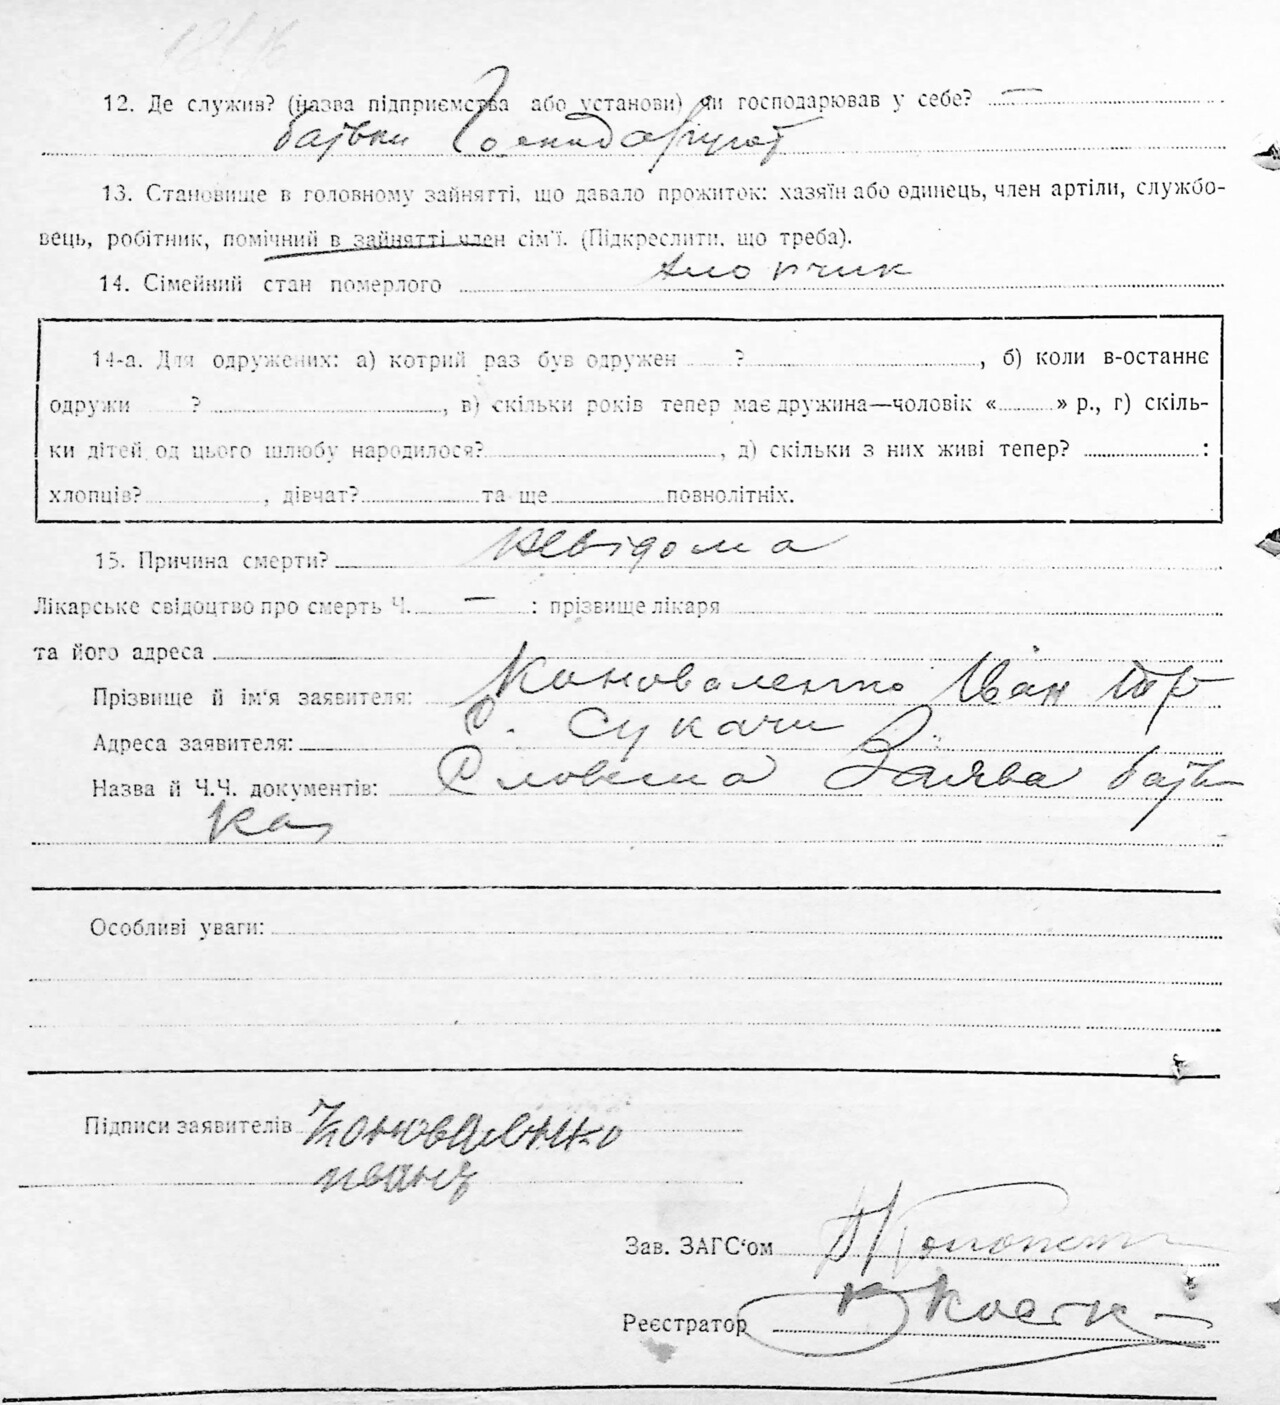 12. Де служив? (назва підприємства або установи) чи господарював у себе? —
батьки Господарюют
13. Становище в головному зайнятті, що давало прожиток: хазяїн або одинець, член артіли, службо-
вець, робітник, помічний в зайнятті член сім'ї. (Підкреслити, що треба).
14. Сімейний стан померлого хлопчик
14-а. Для одружених: а) котрий раз був одружен ?, б) коли в-останнє
одружи ?, в) скільки років тепер має дружина—чоловік « » р., г) скіль-
ки дітей од цього шлюбу народилося?, д) скільки з них живі тепер? :
хлопців?, дівчат? та ще повнолітніх.
15. Причина смерти? Невідома
Лікарське свідоцтво про смерть Ч. — : прізвище лікаря
та його адреса
Прізвище й ім'я заявителя: Коноваленко Іван
Адреса заявителя: С. Сукачи
Назва й Ч.Ч. документів: Словесна Заява батъ
ка
Особливі уваги:
Підписи заявителів Коноваленко
иванъ
Зав. ЗАГС'ом
Реєстратор